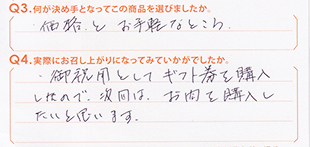 Q3.何が決め手となってこの商品を選びましたか。
・価格と お手軽なところ
Q4.実際にお召し上がりになってみていかがでしたか。
・御祝用として ギフト券を購入
したので、次回は、お肉を購入し
たいと思います。